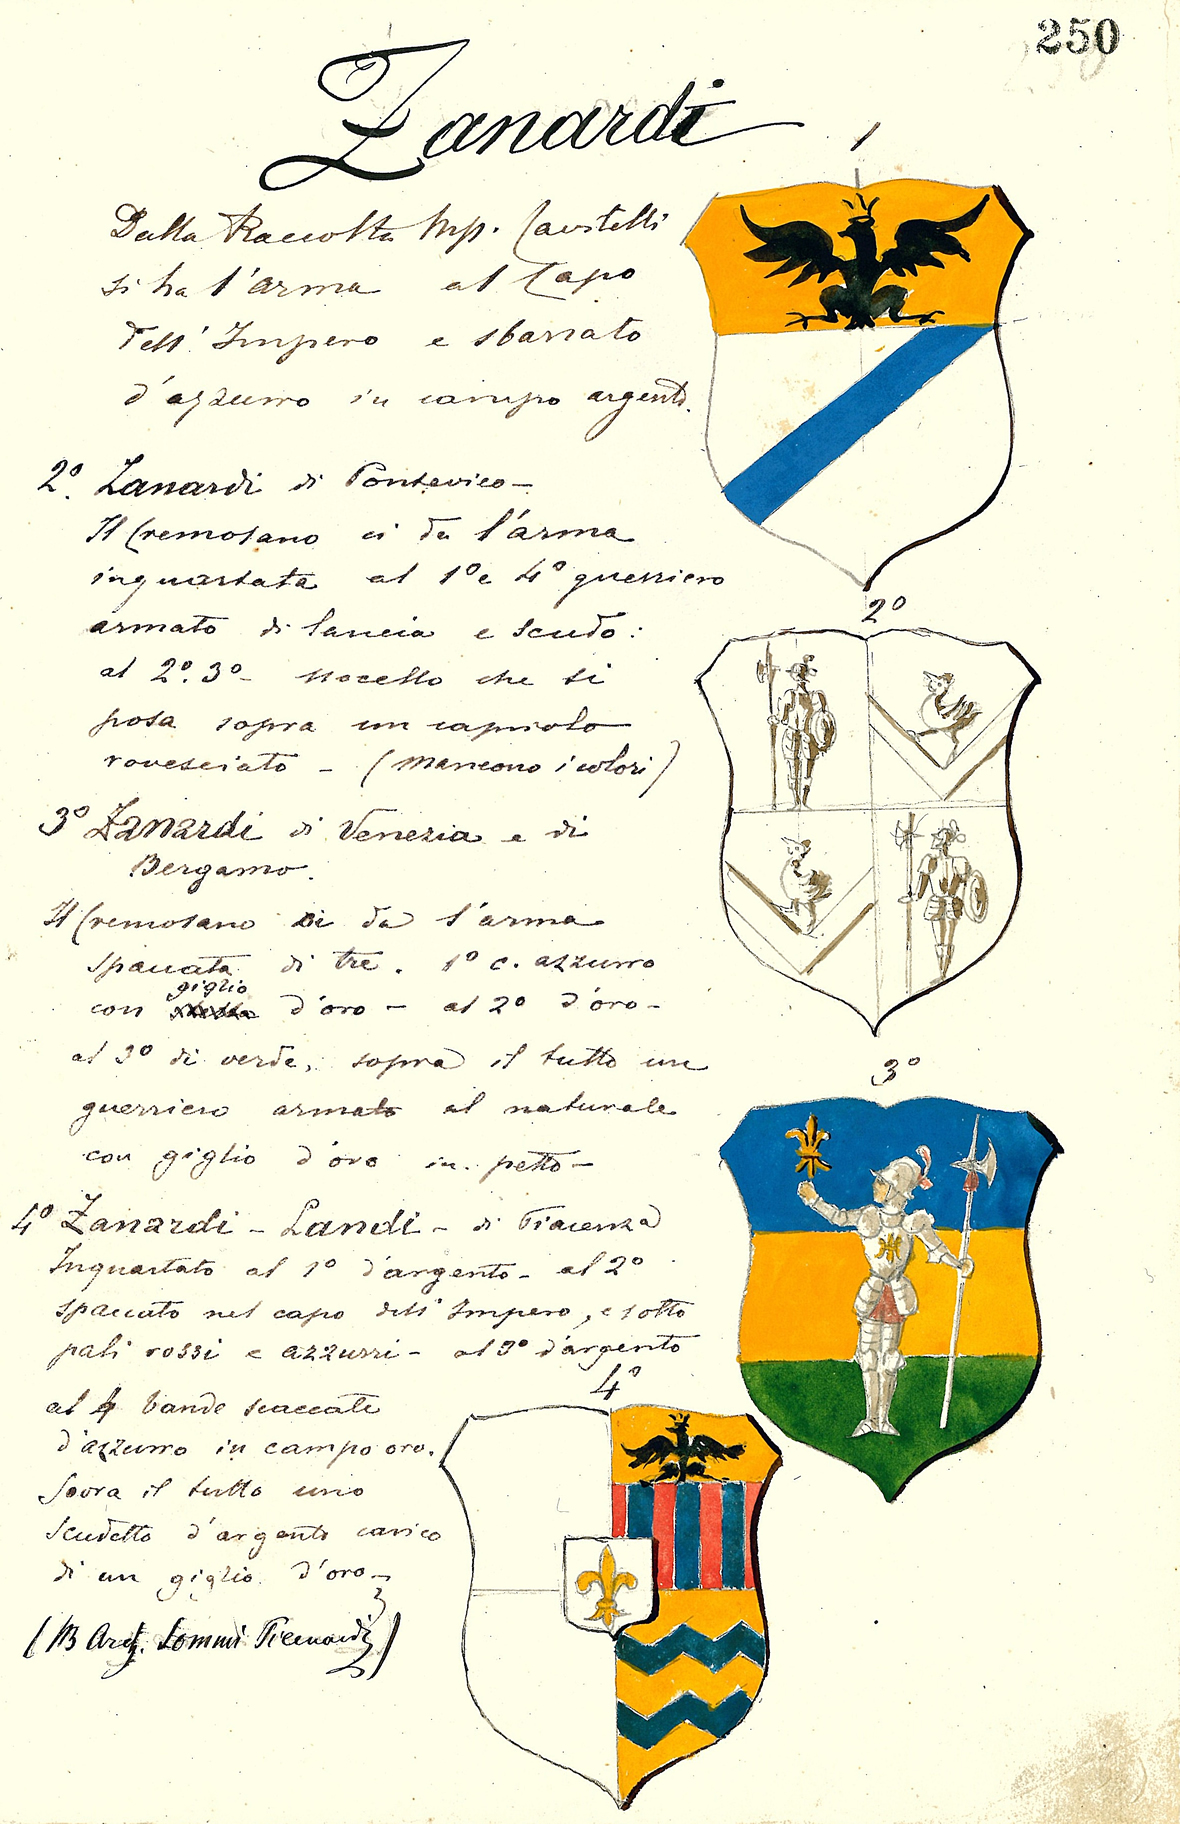 250
Zanardi
1
Dalla Raccolta Imp.
si ha l'arma al Capo
dell' Impero e sbarrato
d'azzurro in campo argento.
2º. Zanardi di Pontevico -
Il Cremosano ci da l'arma
inquartata al 1º e 4º guerriero
armato di lancia e scudo:
al 2º. 3º - uccello che si
posa sopra un capriolo
rovesciato - (Mancono i colori)
2º
3º Zanardi di Venezia e di
Bergamo.
Il Cremosano ci da l'arma
spaccata di tre. 1º c. azzurro
giglio
con d'oro - al 2º d'oro -
al 3º di verde, sopra il tutto un
guerriero armato al naturale
con giglio d'oro in petto -
3º
4º Zanardi - Landi - di Piacenza
Inquartato al 1º d'argento - al 2º
spaccato nel capo dell' Impero, e sotto
pali rossi e azzurri - al 3º d'argento
4º
al 4 bande scaccate
d'azzurro in campo oro.
Sovra il tutto uno
scudetto d'argento carico
di un giglio d'oro -
(B Arag. Sommi Picenardi)